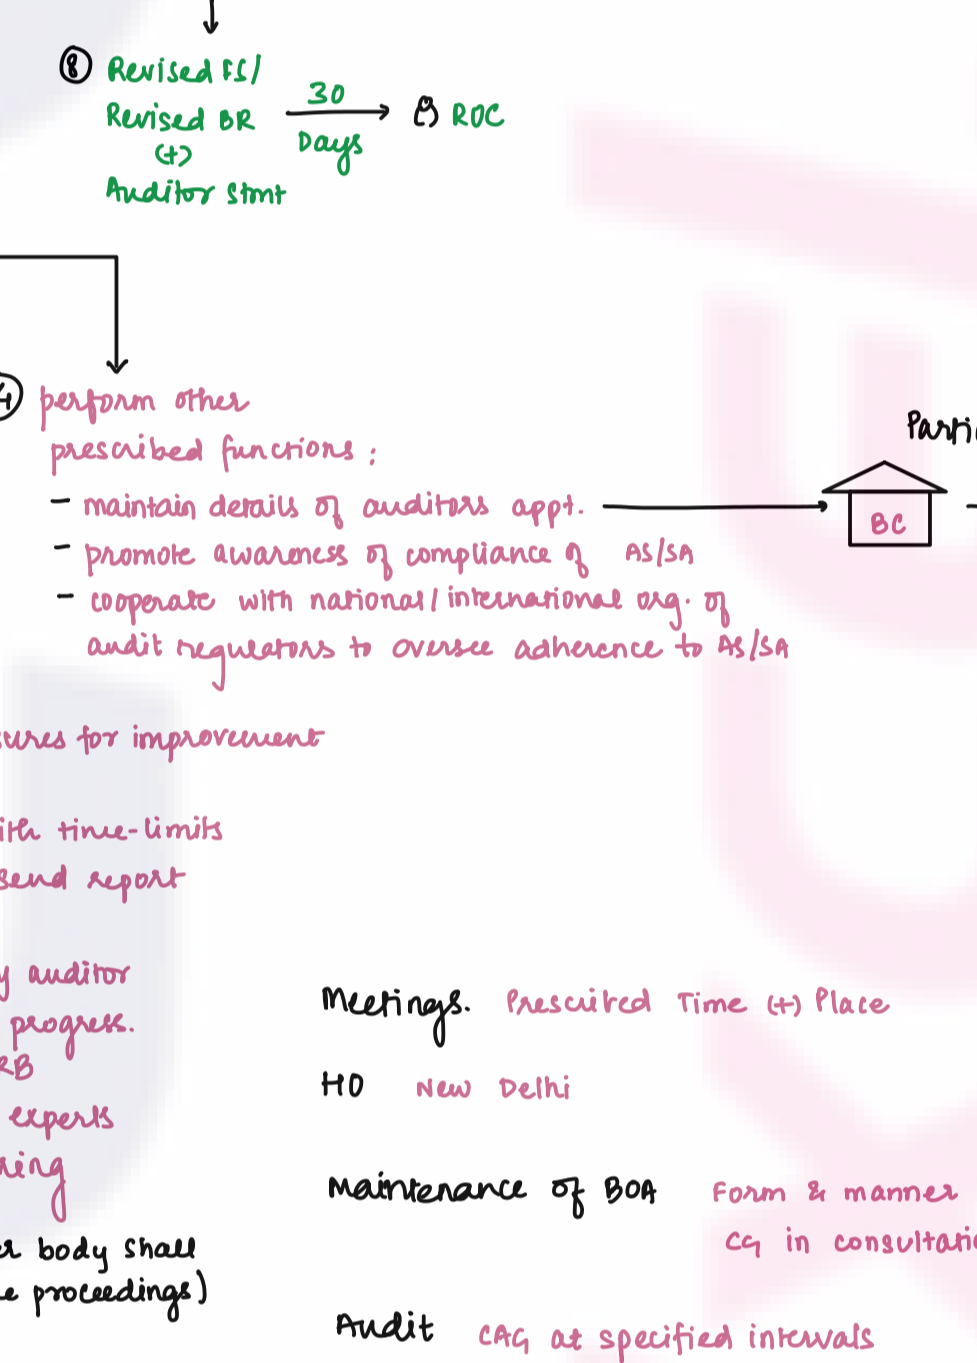 8 Revised FS/
Revised BR
(+)
Auditor Stmt
30
Days
ROC
4 perform other
prescribed functions :
- maintain details of auditors appt.
- promote awareness of compliance of AS/SA
- cooperate with national/international org. of
audit regulators to oversee adherence to AS/SA
Parti
BC
sures for improvement
ith time-limits
send report
y auditor
progress.
RB
experts
ring
er body shall
e proceedings)
Meetings. Prescribed Time (+) Place
HO New Delhi
Maintenance of BOA Form & manner
CG in consultatio
Audit CAG at specified intervals